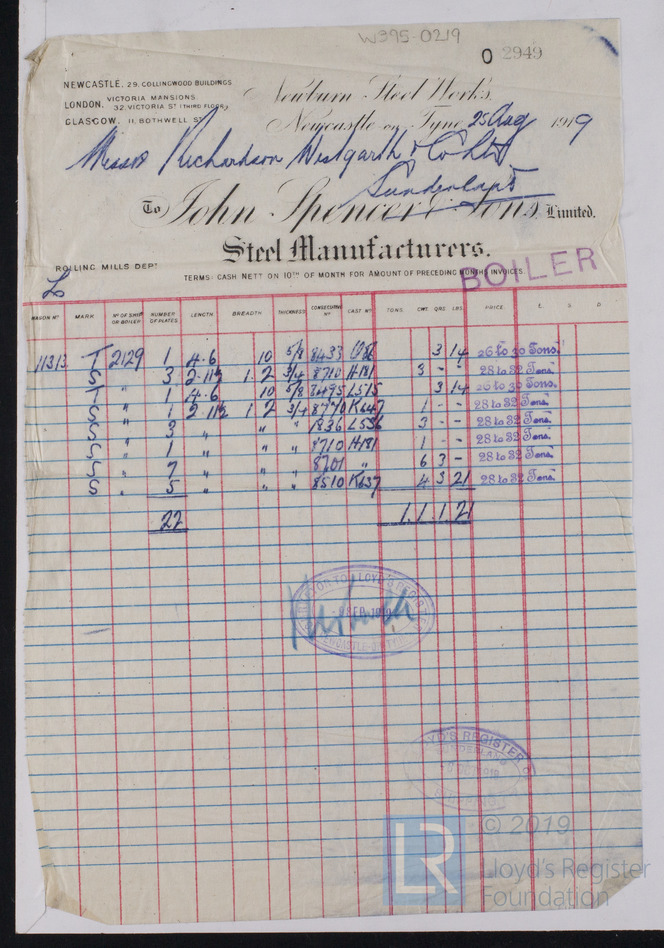 W395-0219
0 2949
NEWCASTLE, 29, COLLINGWOOD BUILDINGS
LONDON, VICTORIA MANSIONS, 32, VICTORIA ST (THIRD FLOOR)
GLASGOW, 11, BOTHWELL ST
Newburn Steel Works,
Newcastle on Tyne, 25 Aug 1919
Messrs Richardson Westgarth & Co Ltd
Sunderland
To John Spencer & Sons, Limited.
Steel Manufacturers.
ROLLING MILLS DEPT
TERMS: CASH NETT ON 10TH OF MONTH FOR AMOUNT OF PRECEDING MONTHS INVOICES.
BOILER
WAGON No MARK. No OF SHIP OR BOILER NUMBER OF PLATES LENGTH BREADTH THICKNESS CONSECUTIVE No CAST No TONS. CWT. QRS. LBS. PRICE. £. S. D.
11313 T 2129 1 4.6 10 5/8 8433 3 14 26 to 30 Tons.
S " 3 2.11½ 1.2 3/4 8710 H181 3 - - 28 to 32 Tons.
T " 1 4.6 10 5/8 8495 L515 3 14 26 to 30 Tons.
S " 1 2.11½ 1.2 3/4 8770 K647 1 - - 28 to 32 Tons.
S " 3 " " " 1836 L536 3 - - 28 to 32 Tons.
S " 1 " " " 8710 H181 1 - - 28 to 32 Tons.
S " 7 " " " 8701 " 6 3 - 28 to 32 Tons.
S " 5 " " " 8510 K637 4 3 21 28 to 32 Tons.
22 1. 1 1. 21
SURVEYOR TO LLOYD'S REGISTER
SEP 1919
NEWCASTLE-ON-TYNE
LLOYD'S REGISTER
SUNDERLAND
LR
© 2019
Lloyd's Register
Foundation